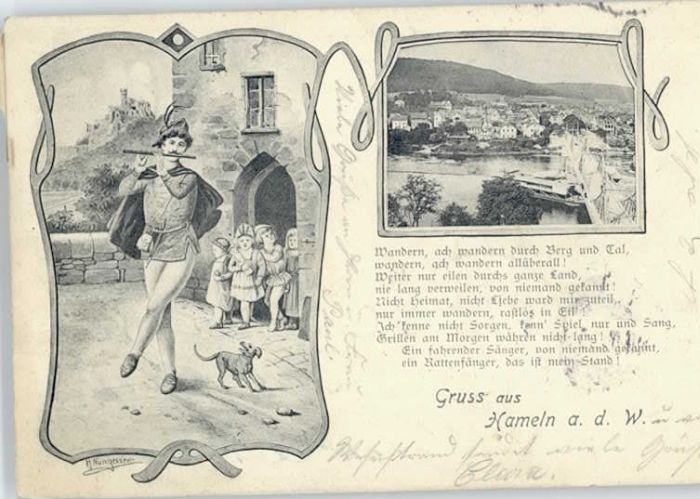 Wandern, ach wandern durch Berg und Tal,
wandern, ach wandern allüberall!
Weiter nur eilen durchs ganze Land,
nie lang verweilen, von niemand gekannt!
Nicht Heimat, nicht Liebe ward mir zuteil,
nur immer wandern, rastlos in Eil!
Ich kenne nicht Sorgen, kenn' Spiel nur und Sang,
Grillen am Morgen währen nicht lang!
Ein fahrender Sänger, von niemand gekannt,
ein Rattenfänger, das ist mein Stand!
Gruss aus
Hameln a. d. W.
Viele Grüße
Paul
sendet viele Grüße
Clara.